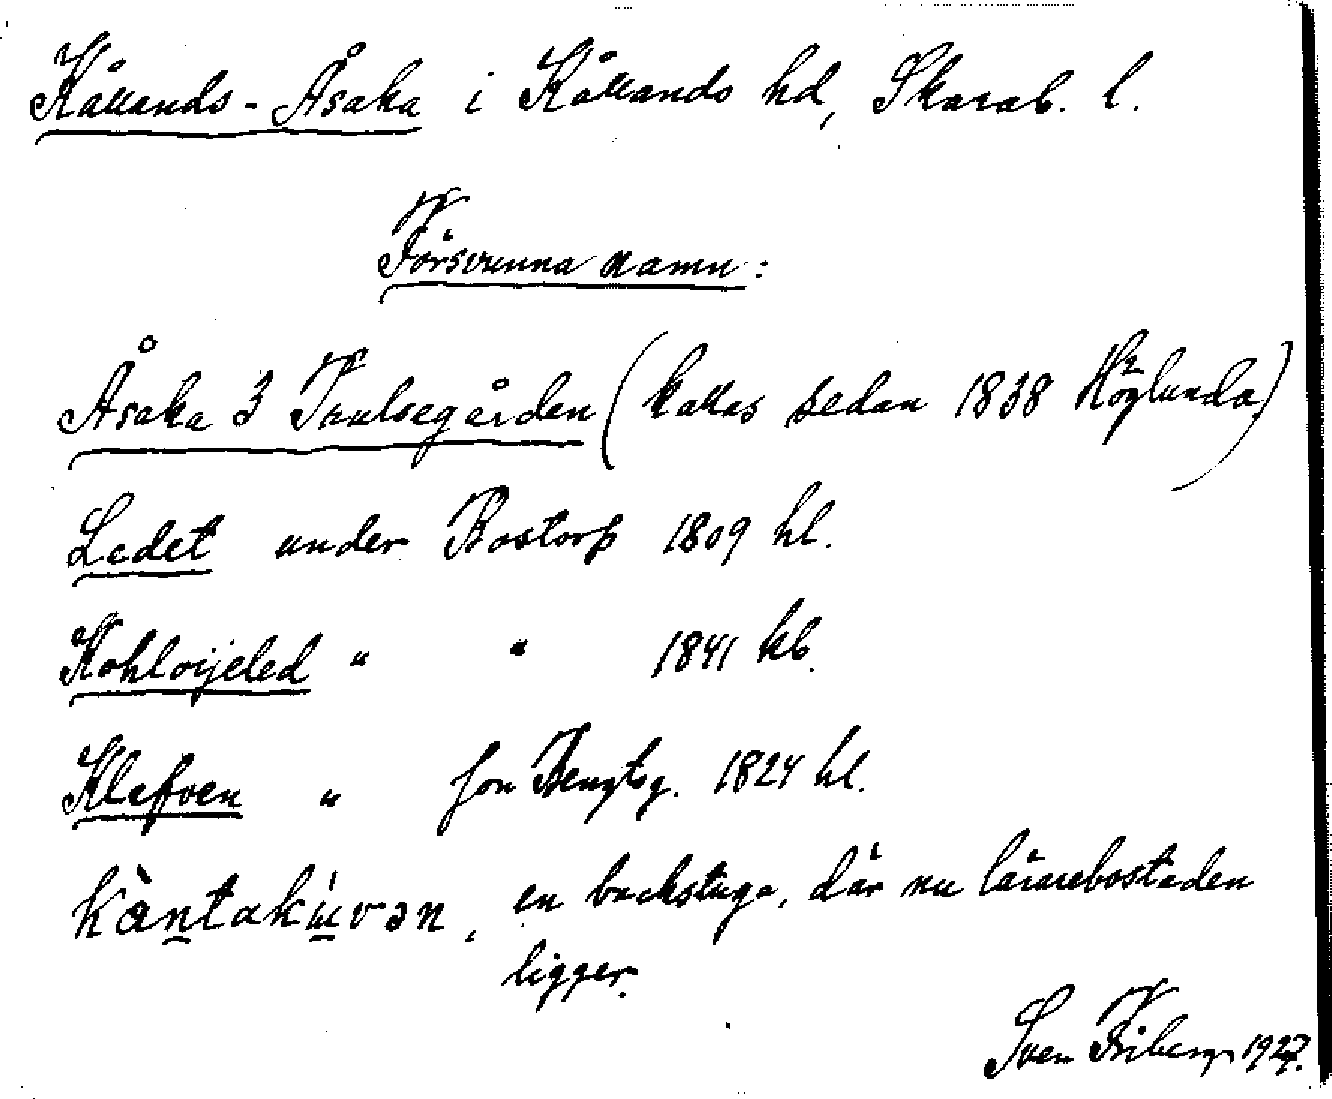 Kållands-Åsaka i Kållands hd, Skarab. l.
Försvunna namn:
Åsaka 3 Truls­egården (kallas sedan 1838 Höglunda)
Ledet under Bostorp 1809 hl.
Kohlvijeled " " 1841 hl.
Klefven " fon Bengtsg. 1824 hl.
en backstuga, där nu lärarebostaden
ligger.
Sven Friberg 1927.